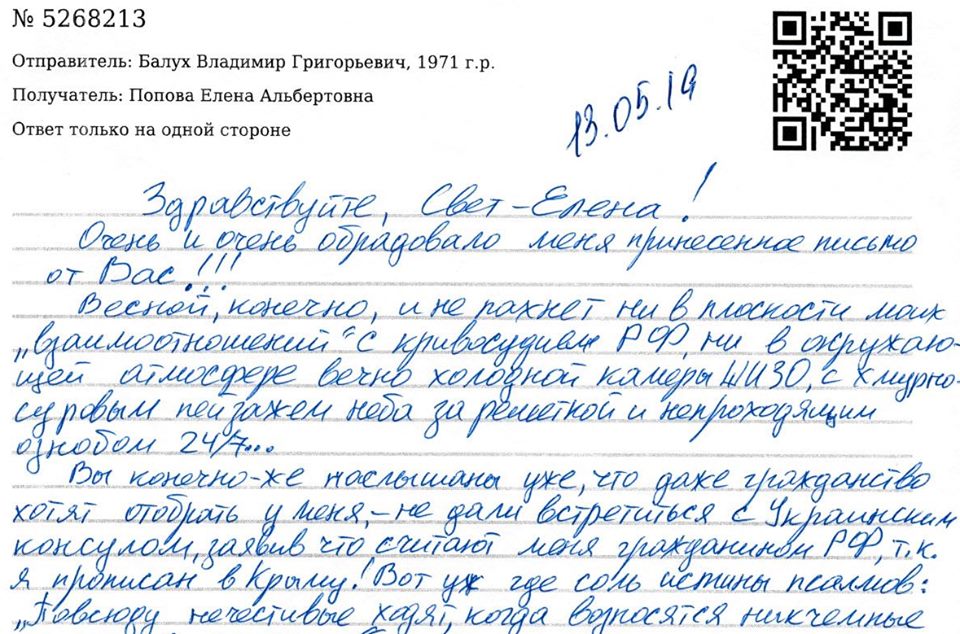 № 5268213
Отправитель: Балух Владимир Григорьевич, 1971 г.р.
Получатель: Попова Елена Альбертовна
Ответ только на одной стороне
13.05.19
Здравствуйте, Свет-Елена!
Очень и очень обрадовало меня принесенное письмо
от Вас!!!
Весной, конечно, и не пахнет ни в плоскости моих
„взаимоотношений" с кривосудием РФ, ни в окружаю-
щей атмосфере вечно холодной камеры ШИЗО, с хмурно-
суровым пейзажем неба за решеткой и непроходящим
ознобом 24/7...
Вы конечно-же наслышаны уже, что даже гражданство
хотят отобрать у меня, – не дали встретиться с Украинским
консулом, заявив что считают меня гражданином РФ, т.к.
я прописан в Крыму! Вот уж где соль истины псалмов:
„Повсюду нечестивые ходят, когда возносятся никчемные